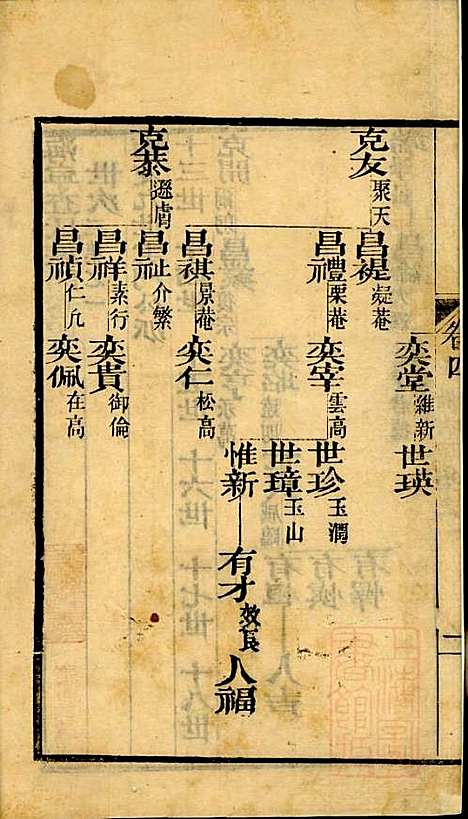 卷四
一
奕堂 維新 世瑛
克友 聚天 昌禔 凝菴
昌禮 豐栗菴 奕宰 雲高 世珍 玉潤
世璋 玉山
惟新 有才 效良 人福
昌祺 景菴 奕仁 松高
克恭 遜膚 昌祉 介繁
昌祥 素行 奕貴 御倫
昌禎 仁九 奕佩 在高